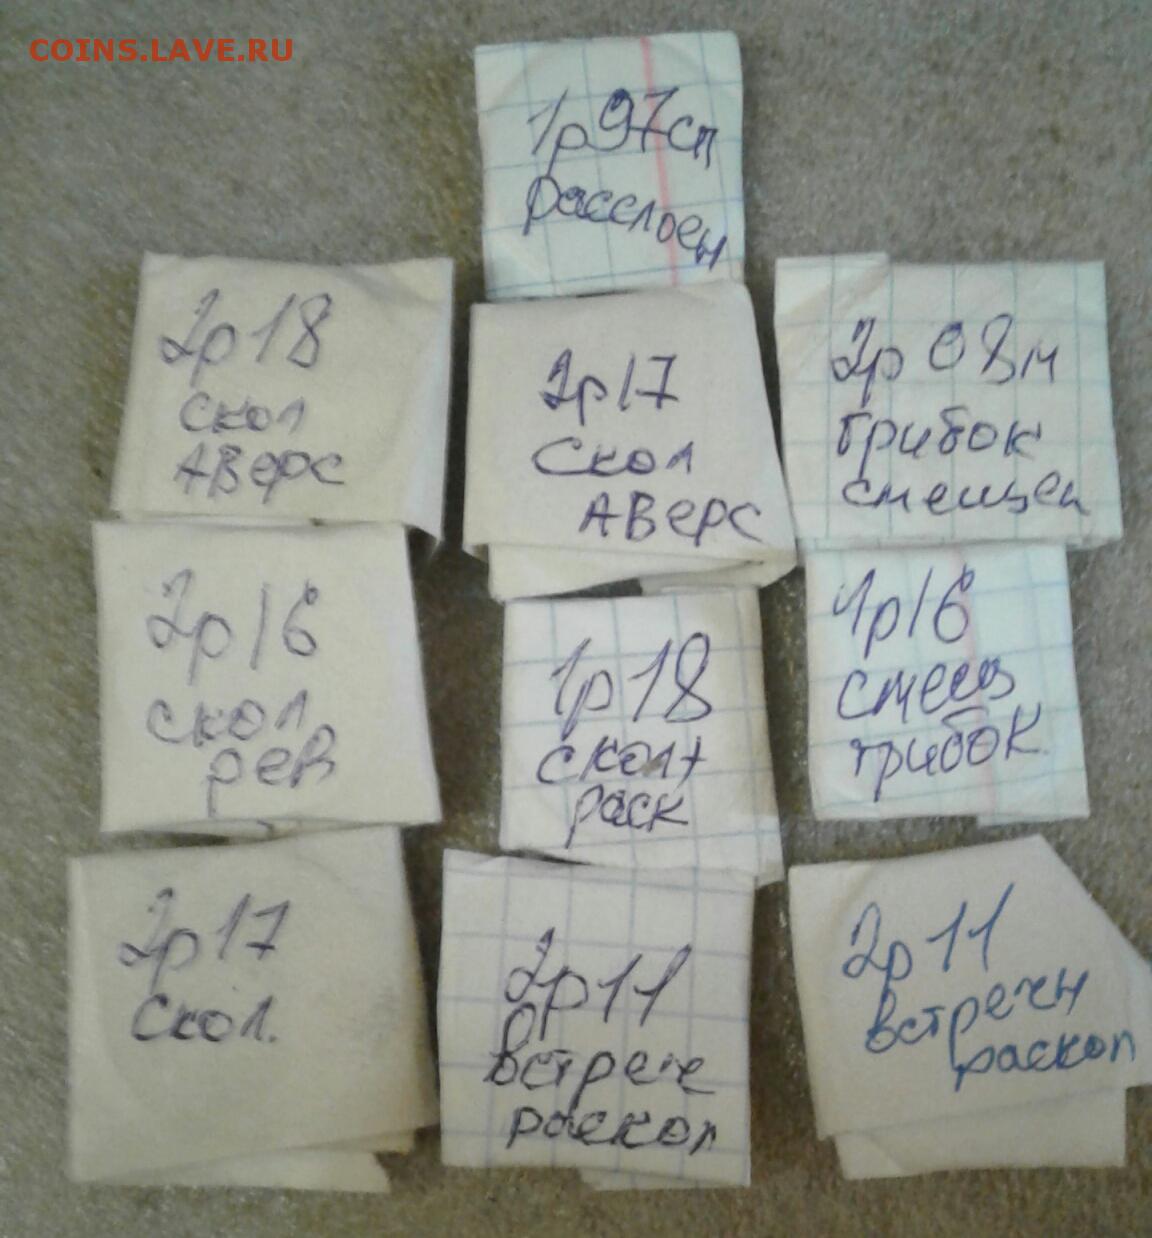 COINS.LAVE.RU
1р97сп
расслоен
2р18
скол
АВерс
2р17
Скол
АВерс
2р 08м
грибок
смещен
2р16
скол
рев
1р18
скол+
раск
1р16
смещ
грибок
2р17
Скол.
2р11
встрече
раскол
2р11
встречн
раскол